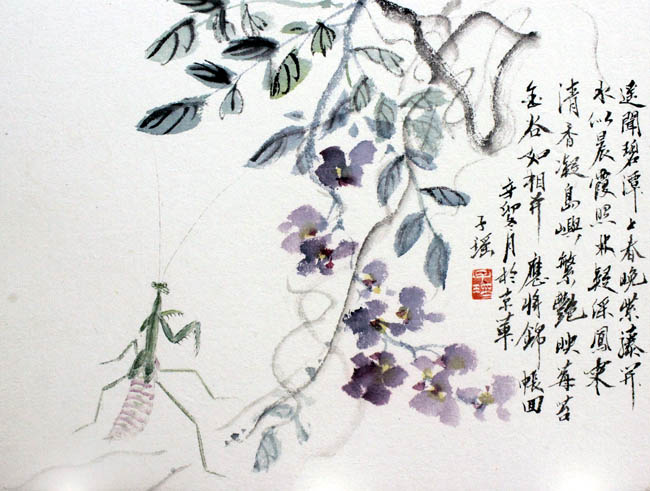 遥聞碧潭上春晚紫藤开
水似晨霞照林疑綵鳳來
清香凝島嶼繁艷映莓苔
金谷如相并應將錦帳回
辛卯冬月於京華
子瑶